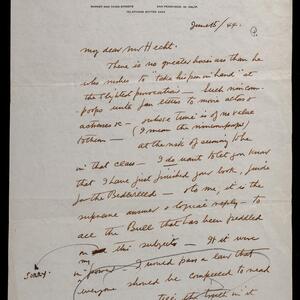 MARKET AND THIRD STREETS SAN FRANCISCO, 19, CALIF.
TELEPHONE SUTTER
June 15/44.
My dear Mr Hecht.
There is no greater horse's ass than he
who rushes to "take his pen in hand" at
the slightest provocation - Such nincom-
poops write fan letters to mere actors &
actresses - whose time is of no value
to them - (I mean the nincompoops)
at the risk of seeming to be
in that class - I do want to let you know
that I have just finished your book, Guide
for the Bedevilled - to me, it is the
supreme answer & logical reply - to
all the Bull that has been peddled
on this subject - If it were
in my power - I would pass a law that
everyone should be compelled to read
the truth in it
Sorry.